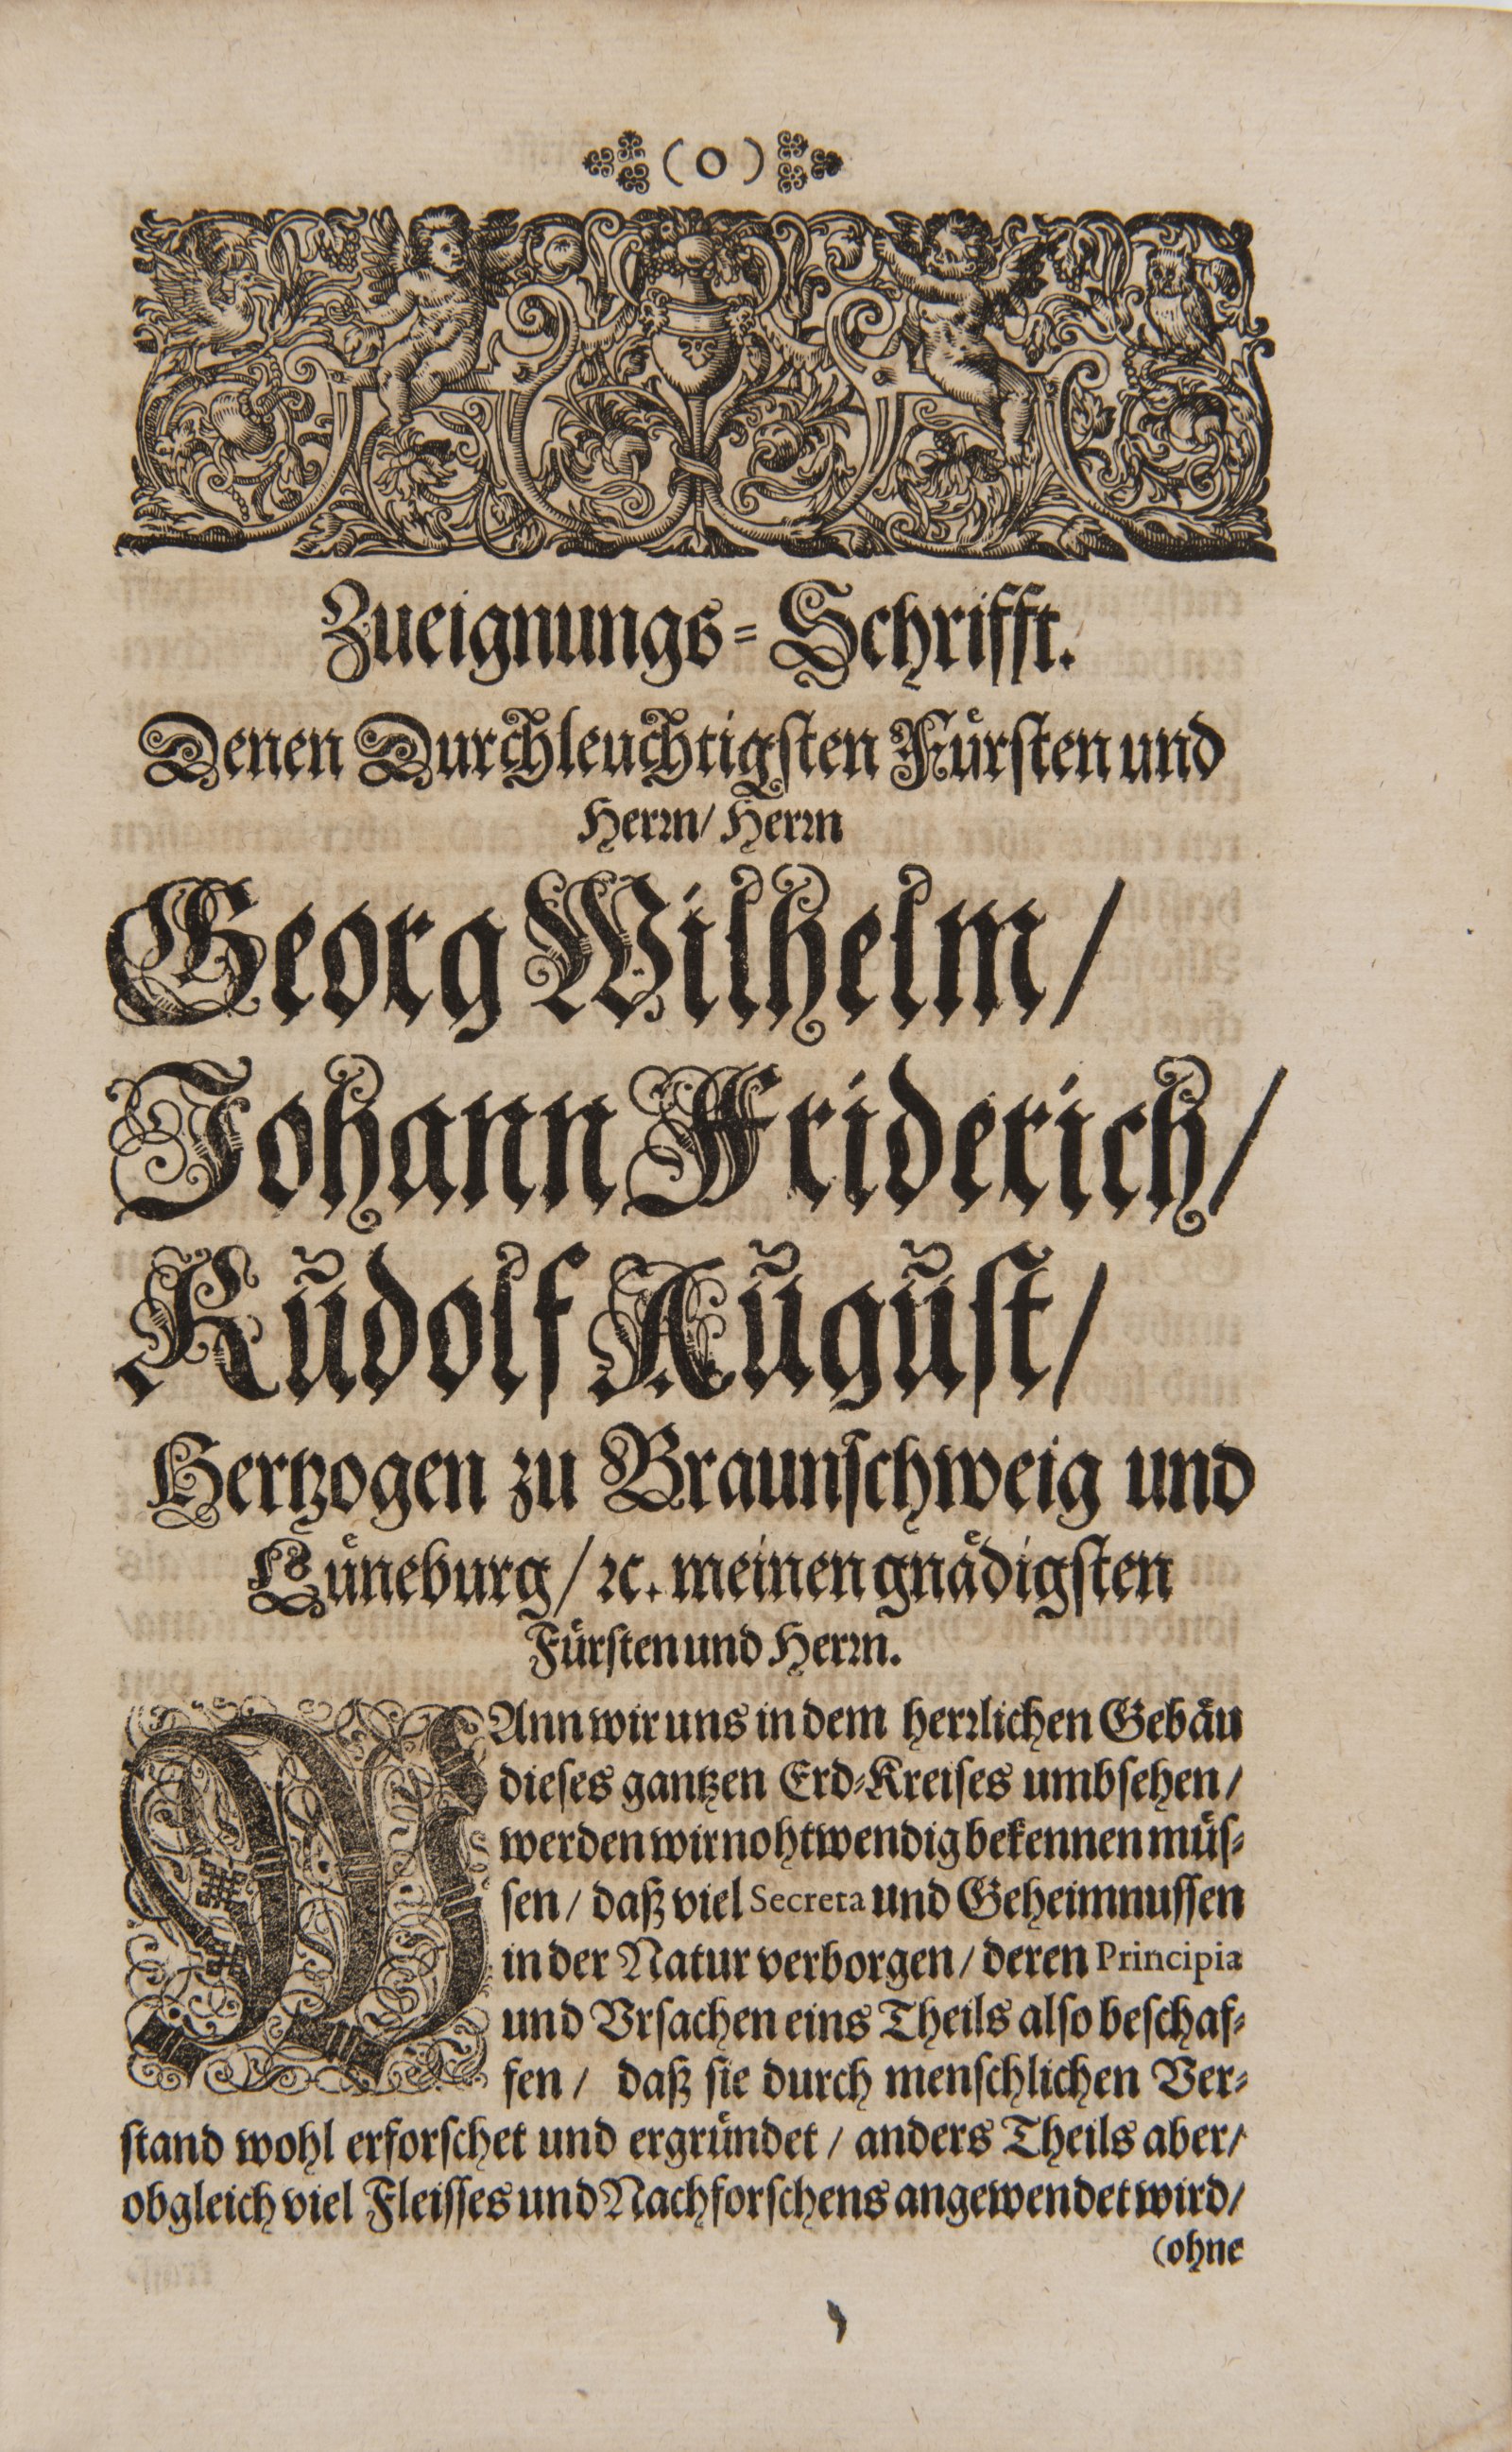 (0)
Zueignungs-Schrifft.
Denen Durchleuchtigsten Fürsten und
Herrn/ Herrn
Georg Wilhelm/
Johann Friderich/
Rudolf August/
Hertzogen zu Braunschweig und
Lüneburg/ ꝛc. meinen gnädigsten
Fürsten und Herrn.
WAnn wir uns in dem herrlichen Gebäu
dieses gantzen Erd-Kreises umbsehen/
werden wir nohtwendig bekennen müs-
sen/ daß viel Secreta und Geheimnussen
in der Natur verborgen/ deren Principia
und Vrsachen eins Theils also beschaf-
fen/ daß sie durch menschlichen Ver-
stand wohl erforschet und ergründet/ anders Theils aber/
obgleich viel Fleisses und Nachforschens angewendet wird/
(ohne